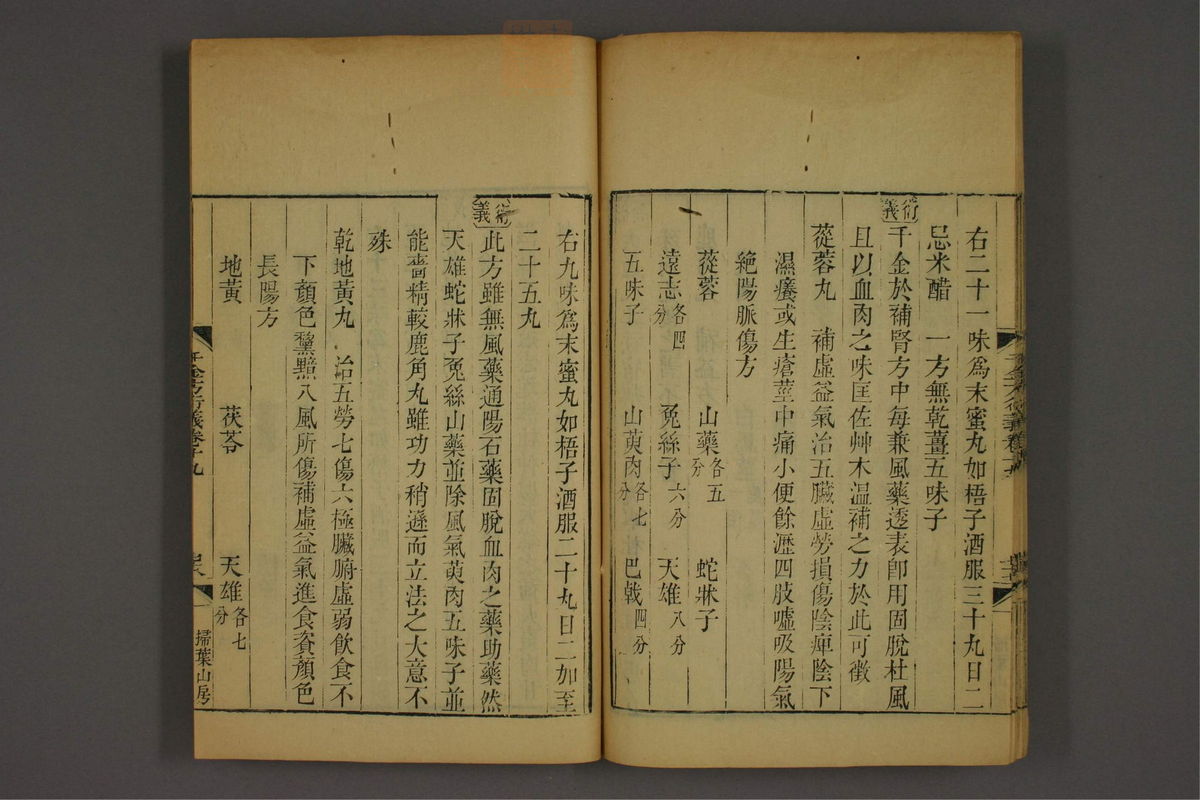 右二十一味爲末蜜丸如梧子酒服三十丸日二
忌米醋　一方無乾薑五味子
衍義
千金於補腎方中每兼風藥透表卽用固脫杜風
且以血肉之味匡佐艸木溫補之力於此可徵
蓯蓉丸　補虛益氣治五臟虛勞損傷陰痺陰下
濕癢或生瘡莖中痛小便餘瀝四肢噓吸陽氣
絕陽脈傷方
蓯蓉　山藥各五分　蛇牀子
遠志各四分　兔絲子六分　天雄八分
五味子　山萸肉各七分　巴戟四分
右九味爲末蜜丸如梧子酒服二十丸日二加至
二十五丸
衍義
此方雖無風藥通陽石藥固脫血肉之藥助藥然
天雄蛇牀子兔絲山藥並除風氣萸肉五味子並
能嗇精較鹿角丸雖功力稍遜而立法之大意不
殊
乾地黃丸　治五勞七傷六極臟腑虛弱飲食不
下顏色黧黯八風所傷補虛益氣進食資顏色
長陽方
地黃　茯苓　天雄各七分
千金方衍義卷十九
掃葉山房